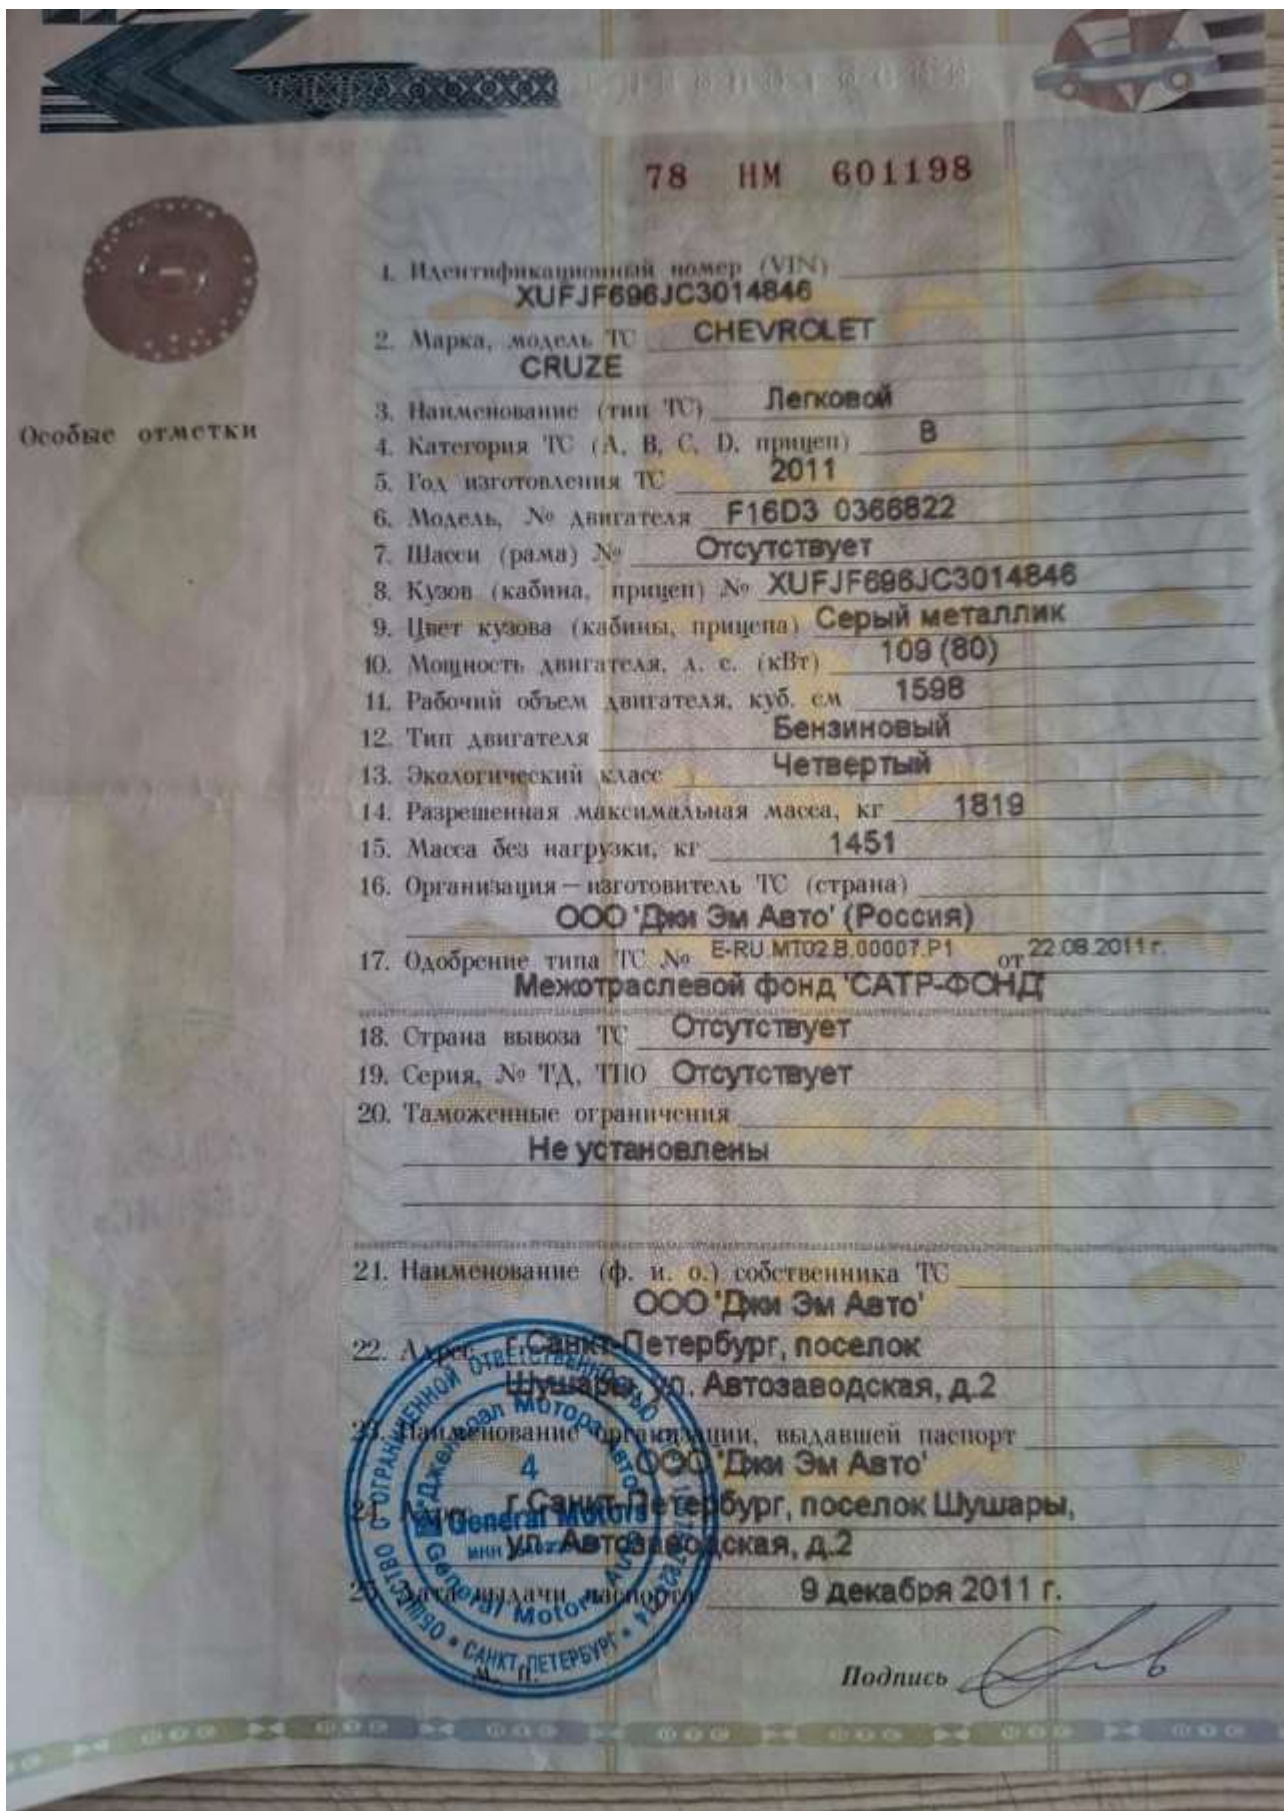 78 НМ 601198
Особые отметки
1. Идентификационный номер (VIN)
XUFJF696JC3014846
2. Марка, модель ТС CHEVROLET
CRUZE
3. Наименование (тип ТС) Легковой
4. Категория ТС (А, В, С, D, прицеп) В
5. Год изготовления ТС 2011
6. Модель, № двигателя F16D3 0366822
7. Шасси (рама) № Отсутствует
8. Кузов (кабина, прицеп) № XUFJF696JC3014846
9. Цвет кузова (кабины, прицепа) Серый металлик
10. Мощность двигателя, л. с. (кВт) 109 (80)
11. Рабочий объем двигателя, куб. см 1598
12. Тип двигателя Бензиновый
13. Экологический класс Четвертый
14. Разрешенная максимальная масса, кг 1819
15. Масса без нагрузки, кг 1451
16. Организация — изготовитель ТС (страна)
ООО 'Джи Эм Авто' (Россия)
17. Одобрение типа ТС № E-RU.MT02.B.00007.P1 от 22.08.2011 г.
Межотраслевой фонд 'САТР-ФОНД'
18. Страна вывоза ТС Отсутствует
19. Серия, № ТД, ТПО Отсутствует
20. Таможенные ограничения
Не установлены
21. Наименование (ф. и. о.) собственника ТС
ООО 'Джи Эм Авто'
22. Адрес г.Санкт-Петербург, поселок
Шушары, ул. Автозаводская, д.2
23. Наименование организации, выдавшей паспорт
ООО 'Джи Эм Авто'
24. Адрес г.Санкт-Петербург, поселок Шушары,
ул. Автозаводская, д.2
25. Дата выдачи паспорта 9 декабря 2011 г.
М. П.
Подпись
ОБЩЕСТВО С ОГРАНИЧЕННОЙ ОТВЕТСТВЕННОСТЬЮ
САНКТ-ПЕТЕРБУРГ
"Дженерал Моторз Авто"
4
General Motors
ИНН
General Motors Auto